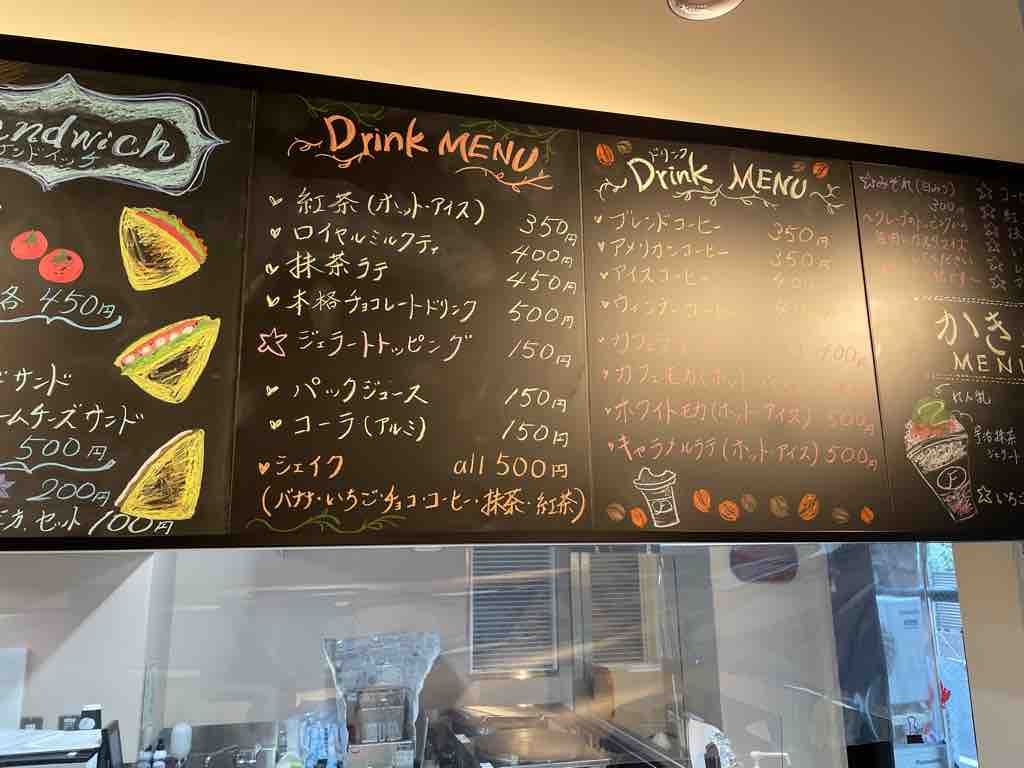 andwich
各 450円
ドサンド
ームチーズサンド
500円
200円
セット 100円
Drink MENU
紅茶(ホット・アイス) 350円
ロイヤルミルクティ 400円
抹茶ラテ 450円
本格チョコレートドリンク 500円
ジェラートトッピング 150円
パックジュース 150円
コーラ(アルミ) 150円
シェイク all 500円
(バナナ・いちご・チョコ・コーヒー・抹茶・紅茶)
ドリンク
Drink MENU
ブレンドコーヒー 350円
アメリカンコーヒー 350円
アイスコーヒー
ウィンナーコーヒー
カフェ 400円
カフェモカ(ホット
ホワイトモカ(ホット・アイス) 500円
キャラメルラテ(ホット・アイス) 500円
みぞれ(白みつ)
300円
かき
MENU
れん乳
宇治抹茶
ジェラート
いちご